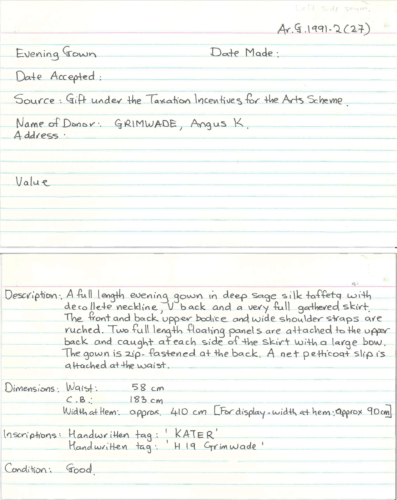 Ar.G.1991-2(27)
Evening Gown Date Made:
Date Accepted:
Source: Gift under the Taxation Incentives for the Arts Scheme.
Name of Donor: GRIMWADE, Angus K.
Address:
Value
Description: A full length evening gown in deep sage silk taffeta with
decollete neckline, V back and a very full gathered skirt.
The front and back upper bodice and wide shoulder straps are
ruched. Two full length floating panels are attached to the upper
back and caught at each side of the skirt with a large bow.
The gown is zip-fastened at the back. A net petticoat slip is
attached at the waist.
Dimensions: Waist: 58 cm
C.B.: 183 cm
Width at Hem: approx. 410 cm [For display-width at hem: approx 90cm]
Inscriptions: Handwritten tag: 'KATER'
Handwritten tag: 'H 19 Grimwade'
Condition: Good.